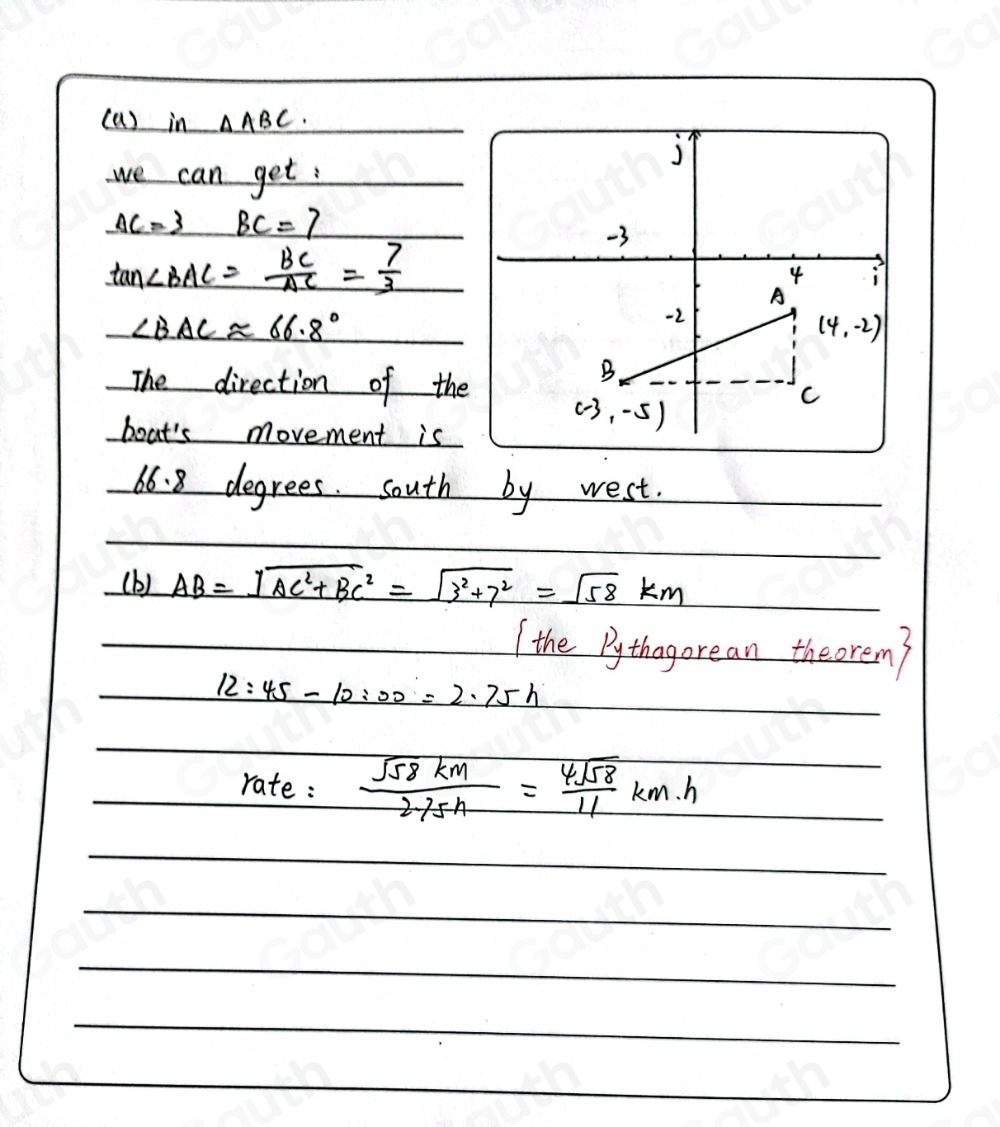 (a) in △ABC.
we can get:
AC=3 BC=7
tan∠BAC= BC/AC = 7/3
∠BAC≈ 66.8°
The direction of the
boat's movement is
66.8 degrees. south by west.
j
-3
4
i
A
-2
(4,-2)
B
C
(-3,-5)
(b) AB= √AC²+BC² = √3²+7² = √58 km
{the Pythagorean theorem}
12:45 - 10:00 = 2.75h
rate: √58 km/2.75h = 4√58/11 km.h
Gauth